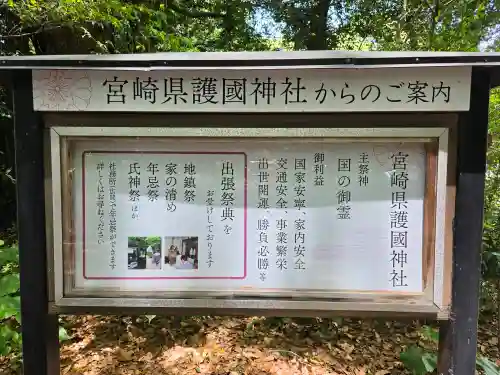 宮崎県護國神社からのご案内
宮崎県護國神社
主祭神
国の御霊
御利益
国家安寧、家内安全
交通安全、事業繁栄
出世開運、勝負必勝 等
出張祭典を
お受けしております
地鎮祭
家の清め
年忌祭
氏神祭 ほか
詳しくはお尋ねください